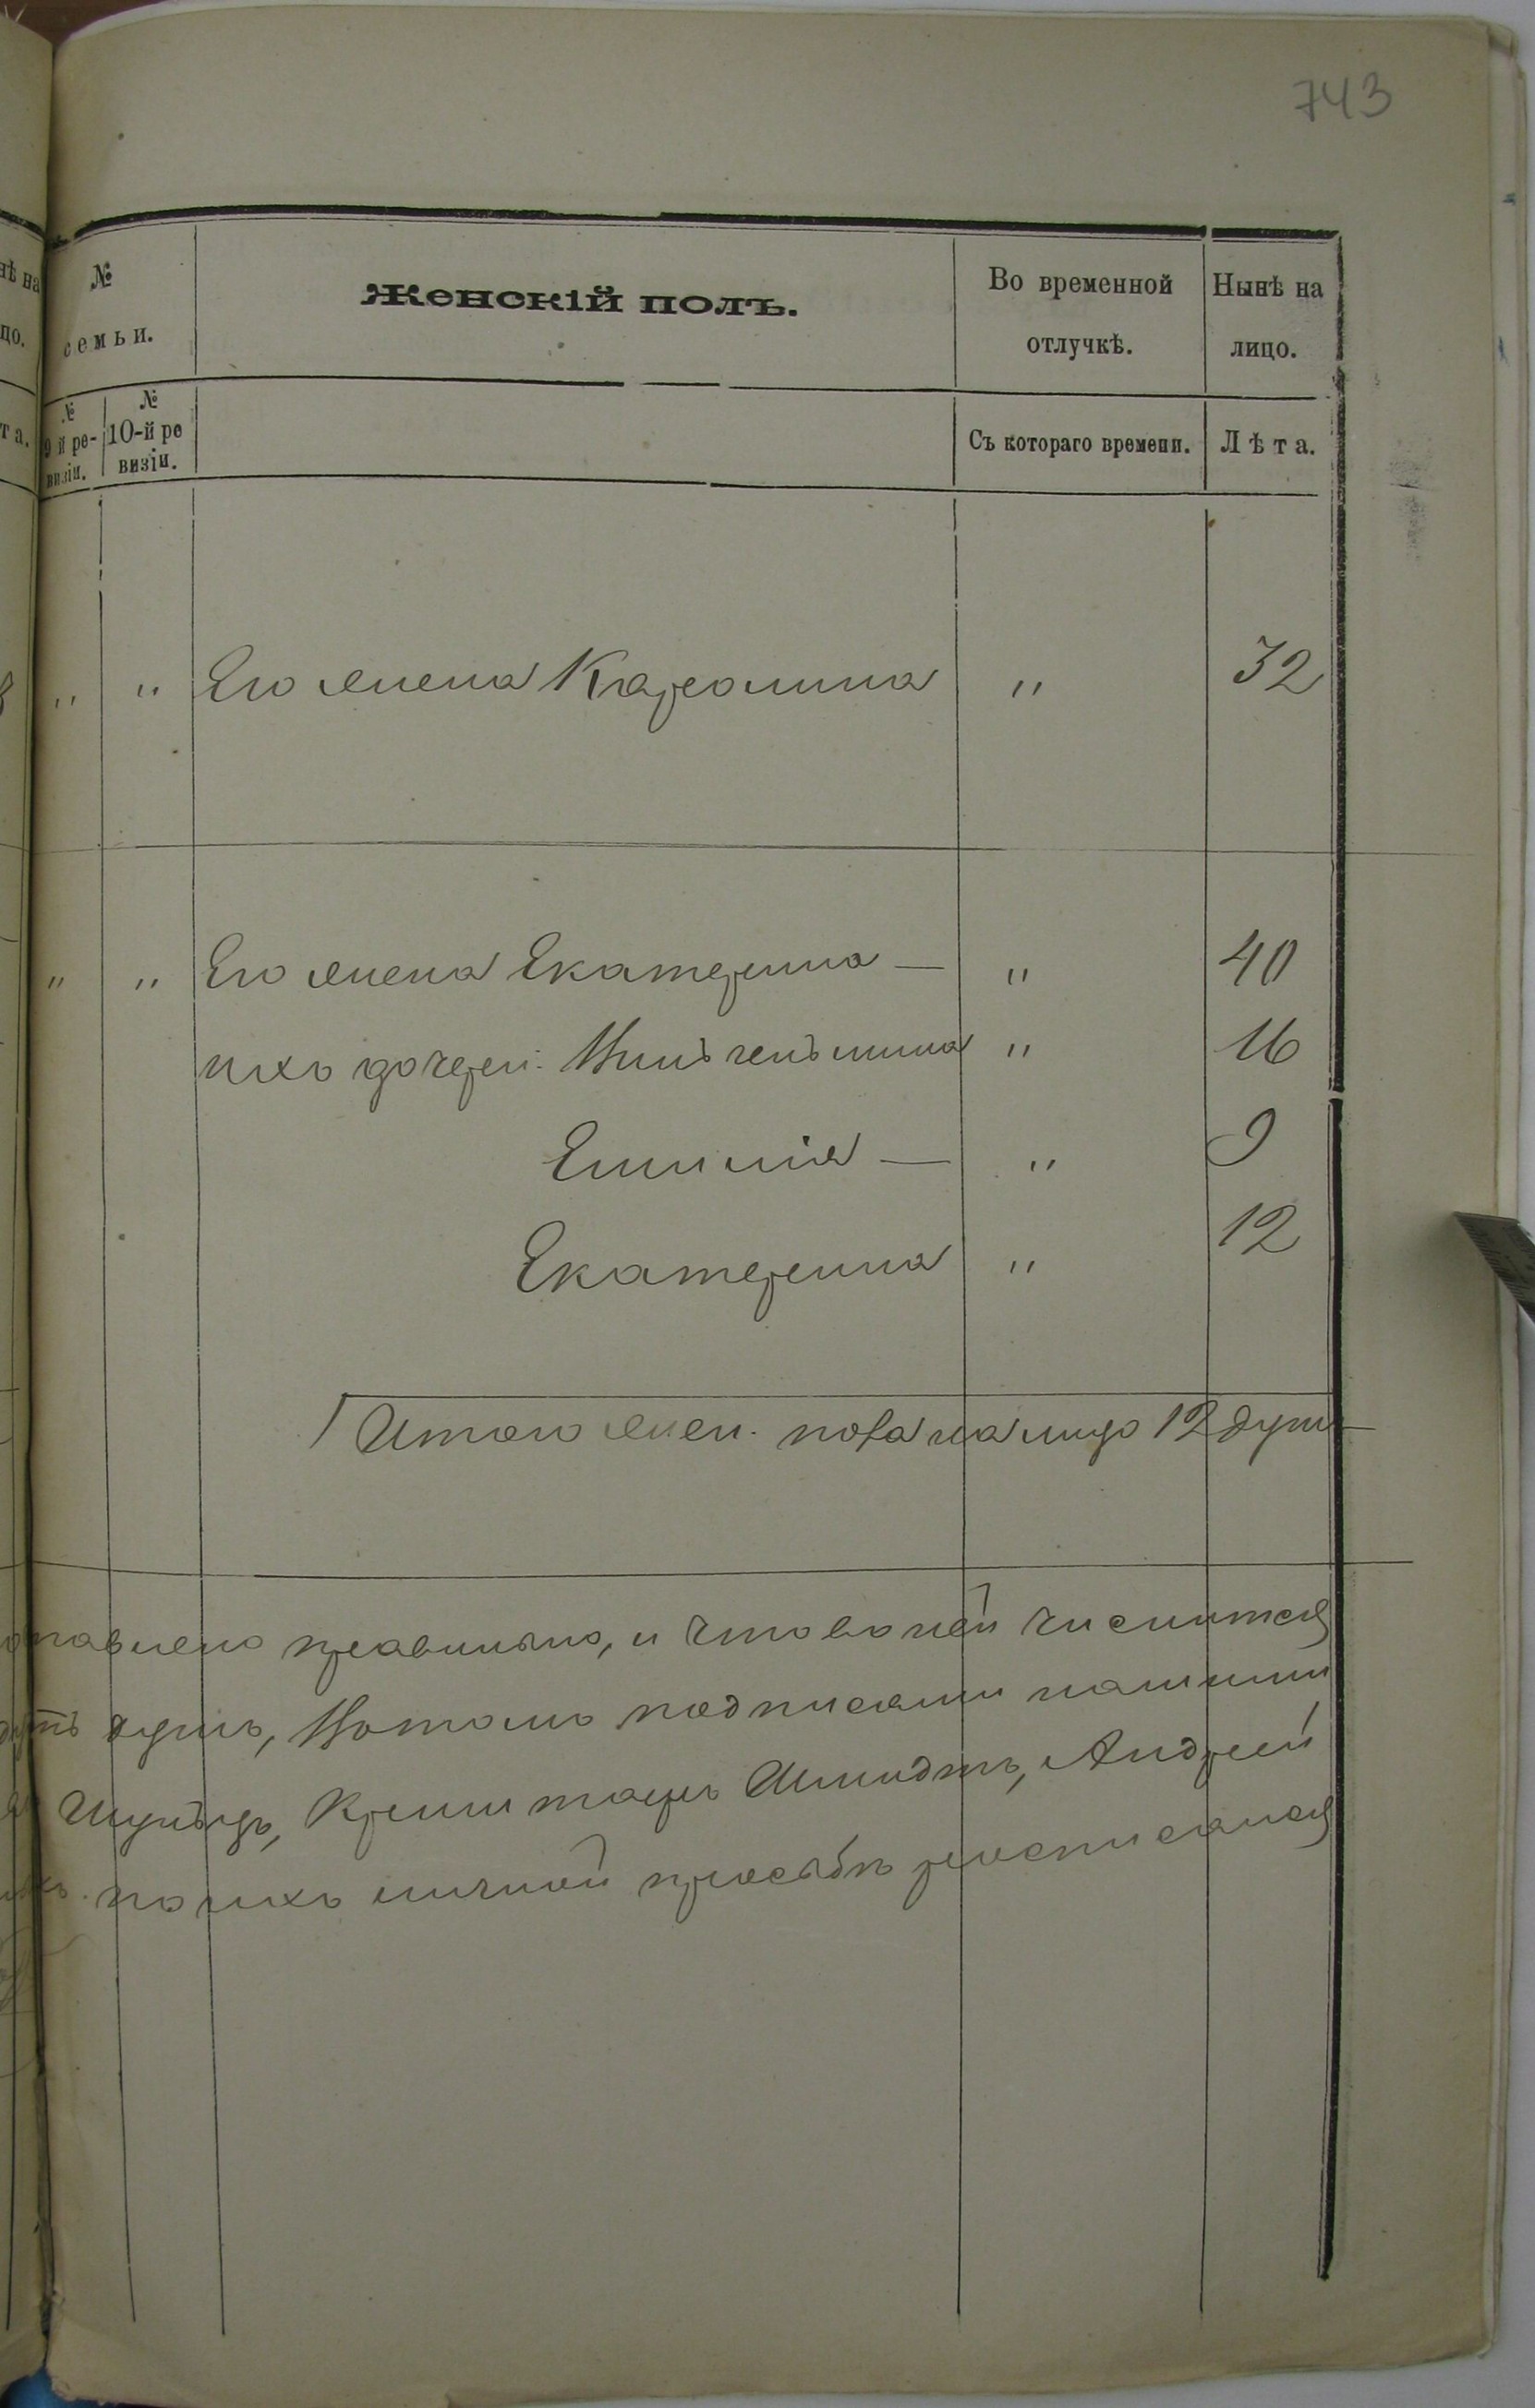 743
№ семьи.
Женскій полъ.
Во временной отлучкѣ.
Нынѣ на лицо.
№ 9 й ре-визіи.
№ 10-й ре визіи.
Съ котораго времени.
Лѣта.
" " Его жена Каролина " 32
" " Его жена Екатерина — " 40
ихъ дочери: Вильгельмина " 16
Емилія — " 9
Екатерина " 12
Итого жен. пола на лицо 12 душъ
правильно, и что въ ней числится
душъ, Въ томъ подписами нашими
Шульцъ, Криштапъ Шмидтъ, Андрей
по ихъ личной просьбѣ росписался